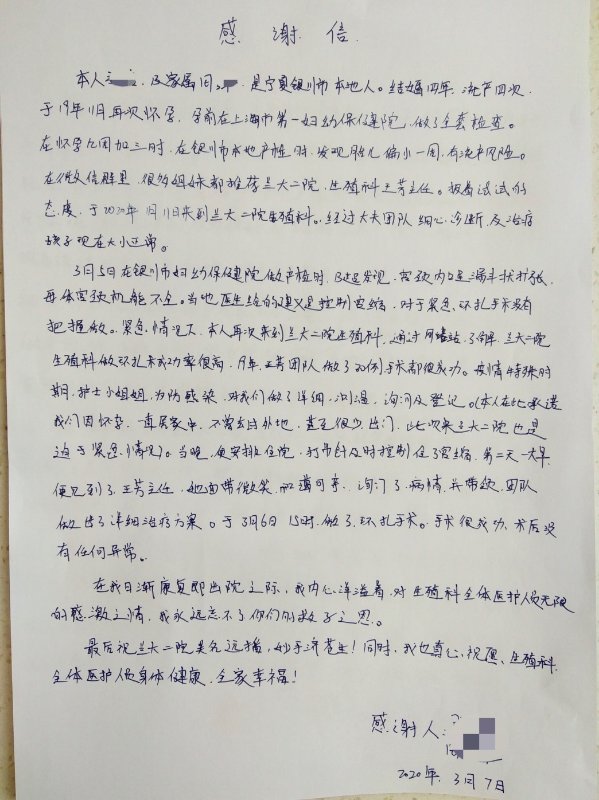 感 谢 信
本人 及家属 是宁夏银川市本地人。结婚四年，流产四次
于19年11月再次怀孕，孕前在上海市第一妇幼保健院，做了全套检查。
在怀孕九周加三时，在银川市本地产检时，发现胎儿偏小一周，有流产风险。
在微信群里，很多姐妹都推荐兰大二院，生殖科王芳主任。抱着试试的
态度，于2020年1月11日来到兰大二院生殖科。经过大夫团队细心诊断及治疗
孩子现在大小正常。
3月5日在银川市妇幼保健院做产检时，B超发现，宫颈内口呈漏斗状扩张，
母体宫颈机能不全。当地医生给的建议是控制宫缩，对于紧急环扎手术没有
把握做。紧急情况下，本人再次来到兰大二院生殖科，通过网络站了解，兰大二院
生殖科做环扎术成功率很高，19年，王芳团队做了20例手术都很成功。疫情特殊时
期，护士小姐姐，为防感染，对我们做了详细，测温，询问及登记。(本人在此承诺
我们因怀孕，一直居家中，不曾去过外地，甚至很少出门，此次来兰大二院也是
迫于紧急情况)。当晚，便安排住院，打点针及时控制住了宫缩，第二天一大早，
便见到了王芳主任，她面带微笑，和蔼可亲，询问了病情，并带领团队
做出了详细治疗方案。于3月6日15时，做了环扎手术。手术很成功，术后没
有任何异常。
在我日渐康复即出院之际，我内心洋溢着，对生殖科全体医护人员无限
的感激之情，我永远忘不了你们的救子之恩。
最后祝兰大二院美名远播，妙手济苍生！同时，我也真心祝愿，生殖科，
全体医护人员身体健康，全家幸福！
感谢人：
2020年3月7日